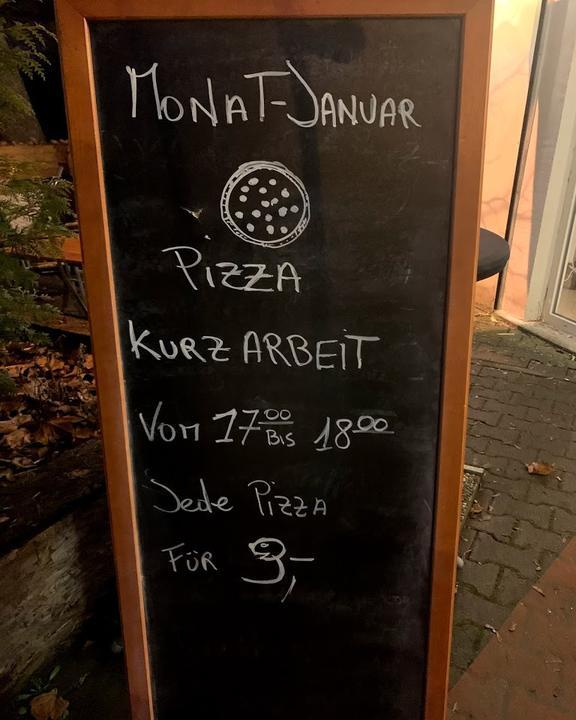 MONAT-JANUAR
PIZZA
KURZ ARBEIT
Von 17⁰⁰ BIS 18⁰⁰
Jede PIZZA
FÜR 9,-